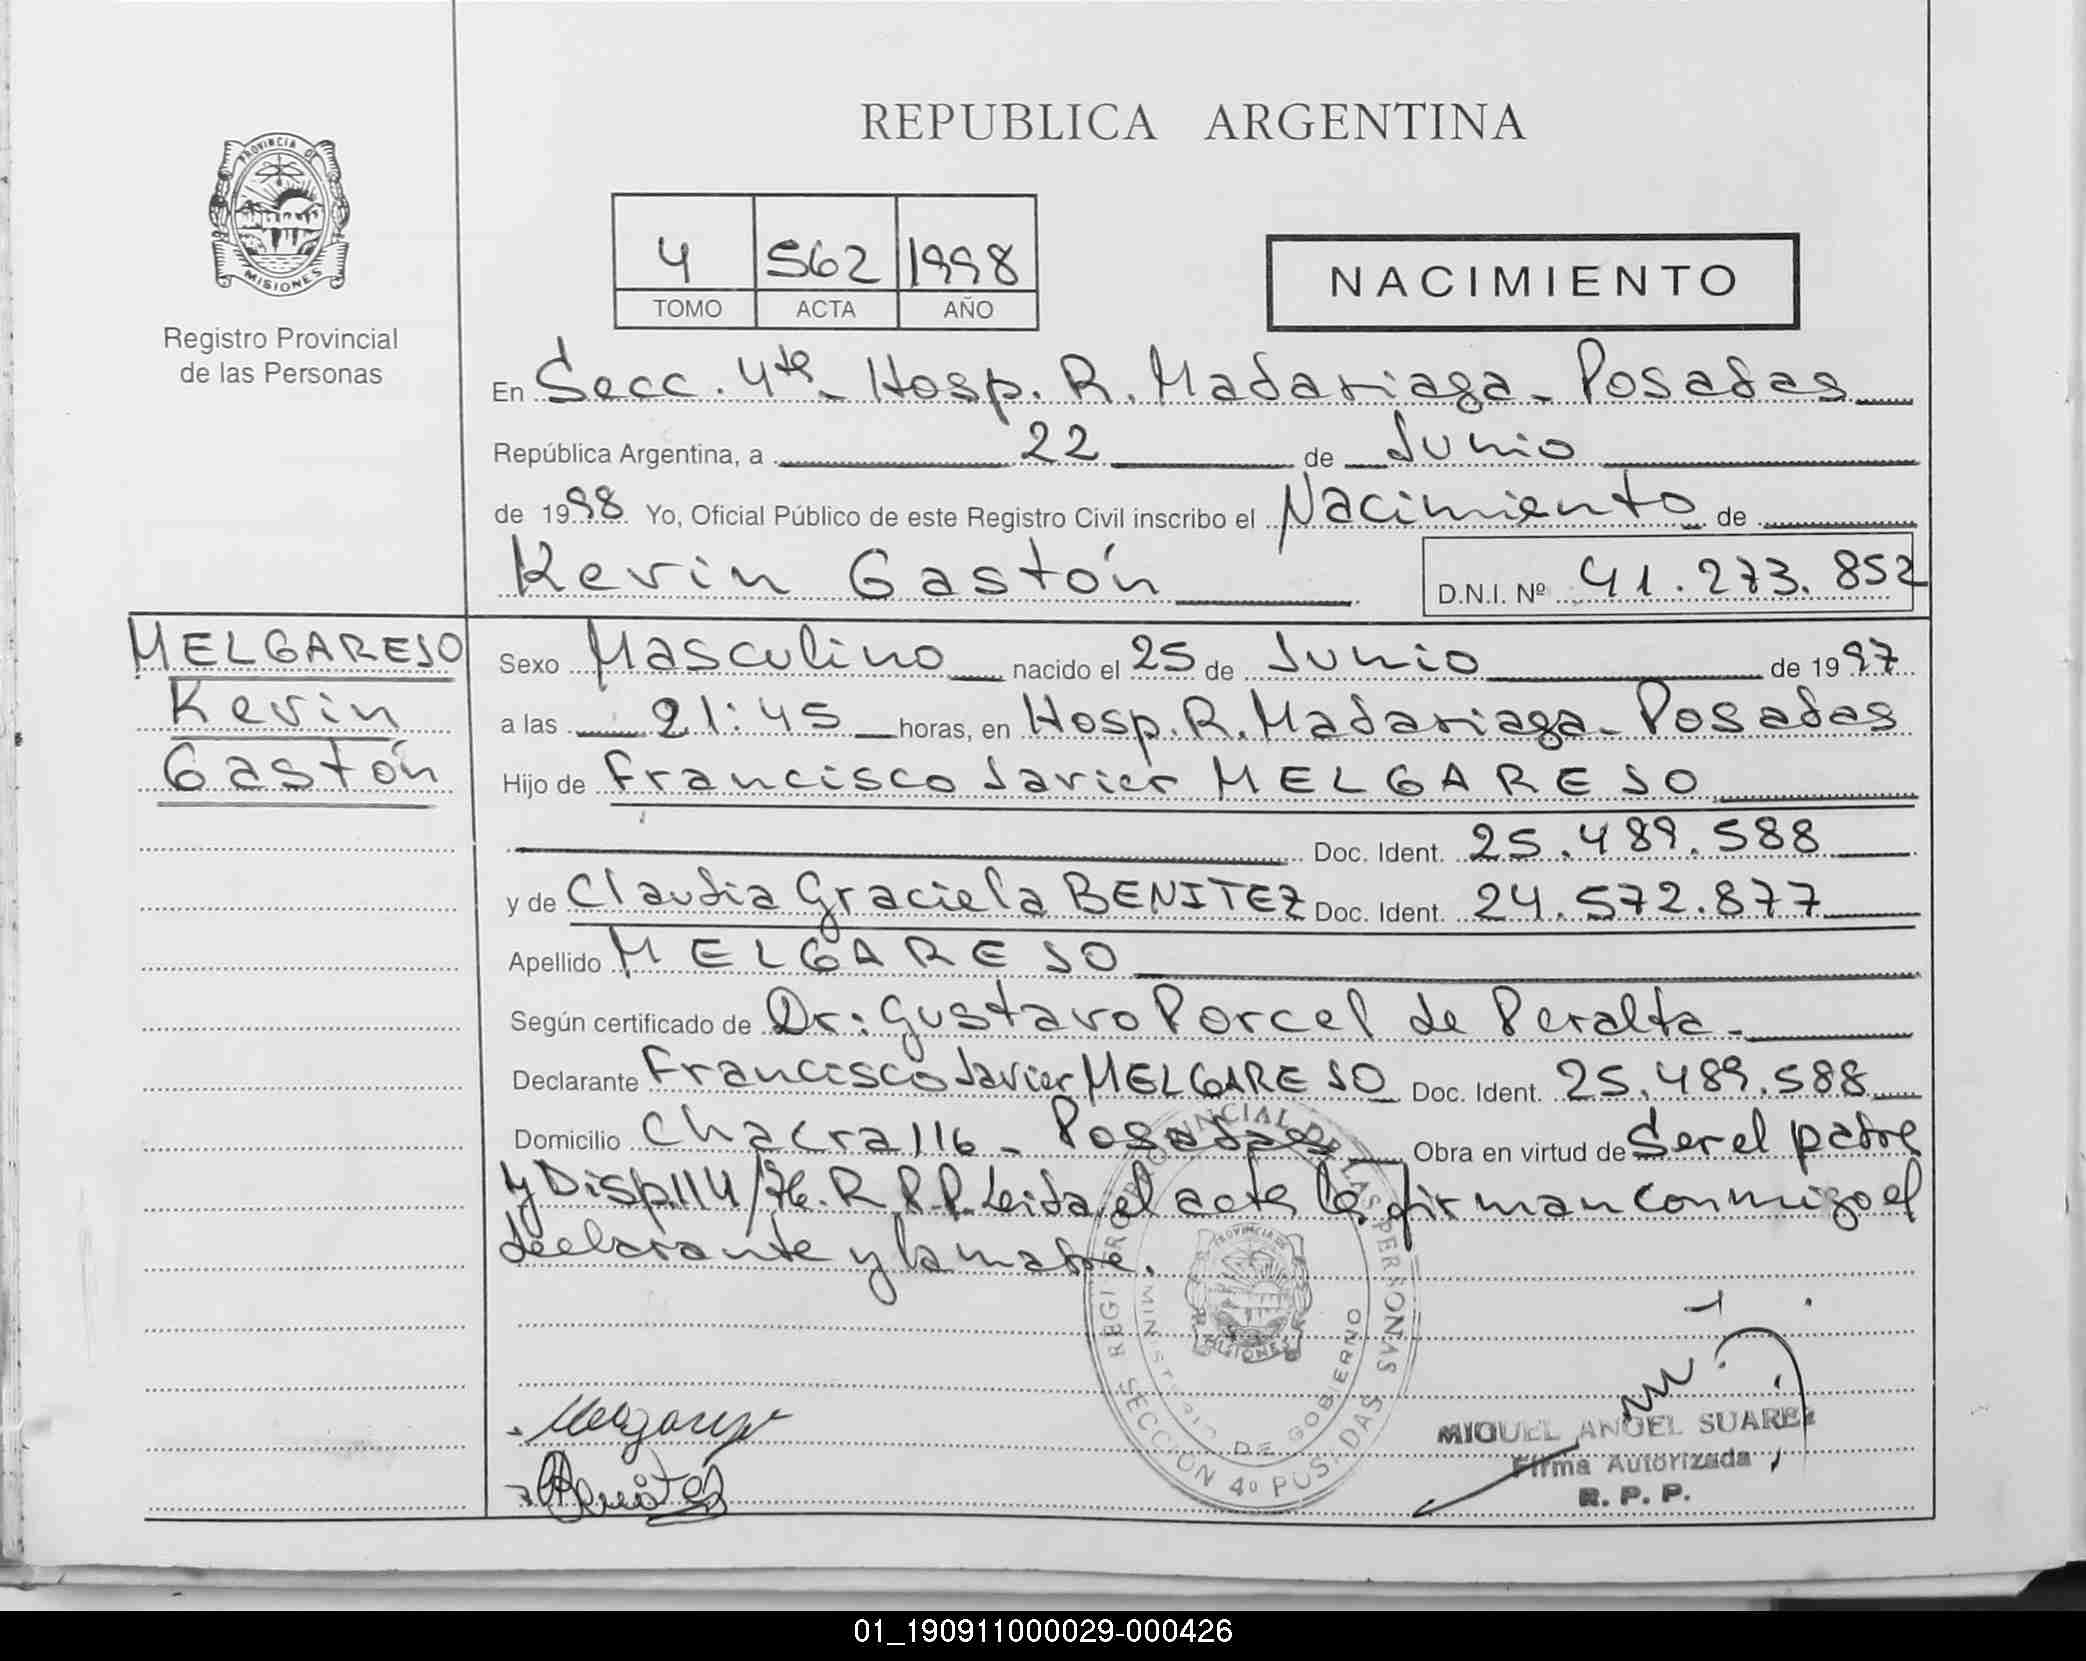 REPUBLICA ARGENTINA
PROVINCIA DE
MISIONES
Registro Provincial
de las Personas
4 562 1998
TOMO ACTA AÑO
NACIMIENTO
En Secc. 4ta - Hosp. R. Madariaga - Posadas
República Argentina, a 22 de Junio
de 1998 Yo, Oficial Público de este Registro Civil inscribo el Nacimiento de
Kevin Gastón D.N.I. Nº 41.273.852
MELGAREJO
Kevin
Gastón
Sexo Masculino nacido el 25 de Junio de 1997
a las 21:45 horas, en Hosp. R. Madariaga - Posadas
Hijo de Francisco Javier MELGAREJO
Doc. Ident. 25.489.588
y de Claudia Graciela BENITEZ Doc. Ident. 24.572.877
Apellido MELGAREJO
Según certificado de Dr: Gustavo Porcel de Peralta -
Declarante Francisco Javier MELGAREJO Doc. Ident. 25.489.588
Domicilio Chacra 116 - Posadas Obra en virtud de Ser el padre
y Disp. 114/76. R.P.P. Leida el acta la firman conmigo el
declarante y la madre.
REGISTRO PROVINCIAL DE LAS PERSONAS
SECCION 4º POSADAS
MINISTERIO DE GOBIERNO
PROVINCIA DE
MISIONES
Melgarejo
Benitez
MIGUEL ANGEL SUAREZ
Firma Autorizada
R. P. P.
01_190911000029-000426